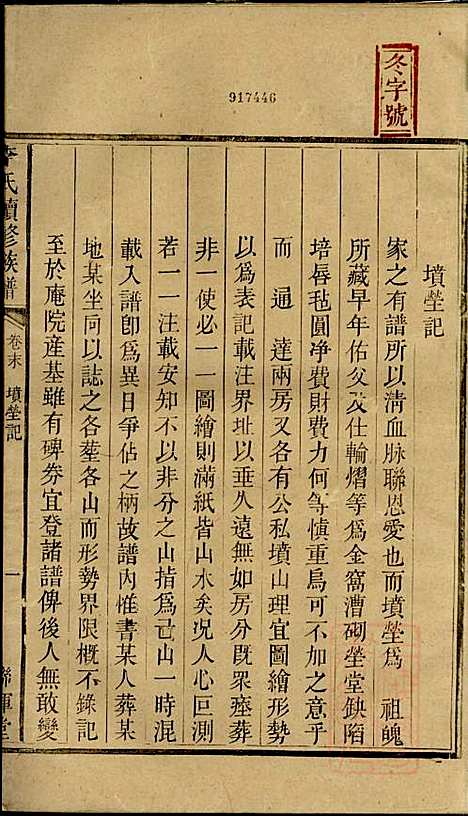 冬字號
917446
墳塋記
家之有譜所以清血脉聯恩愛也而墳塋爲 祖魄
所藏早年佑父及仕輪熠等爲金窩漕砌塋堂缺陷
培唇毡圓净費財費力何等慎重烏可不加之意乎
而通達兩房又各有公私墳山理宜圖繪形勢
以爲表記載注界址以垂久遠無如房分旣眾瘞葬
非一使必一一圖繪則滿紙皆山水矣况人心叵測
若一一注載安知不以非分之山指爲己山一時混
載入譜卽爲異日争佔之柄故譜内惟書某人葬某
地某坐向以誌之各塟各山而形勢界限概不錄記
至於庵院産基雖有碑券宜登諸譜俾後人無敢變
氏續修族譜
卷末 墳塋記
一
堂